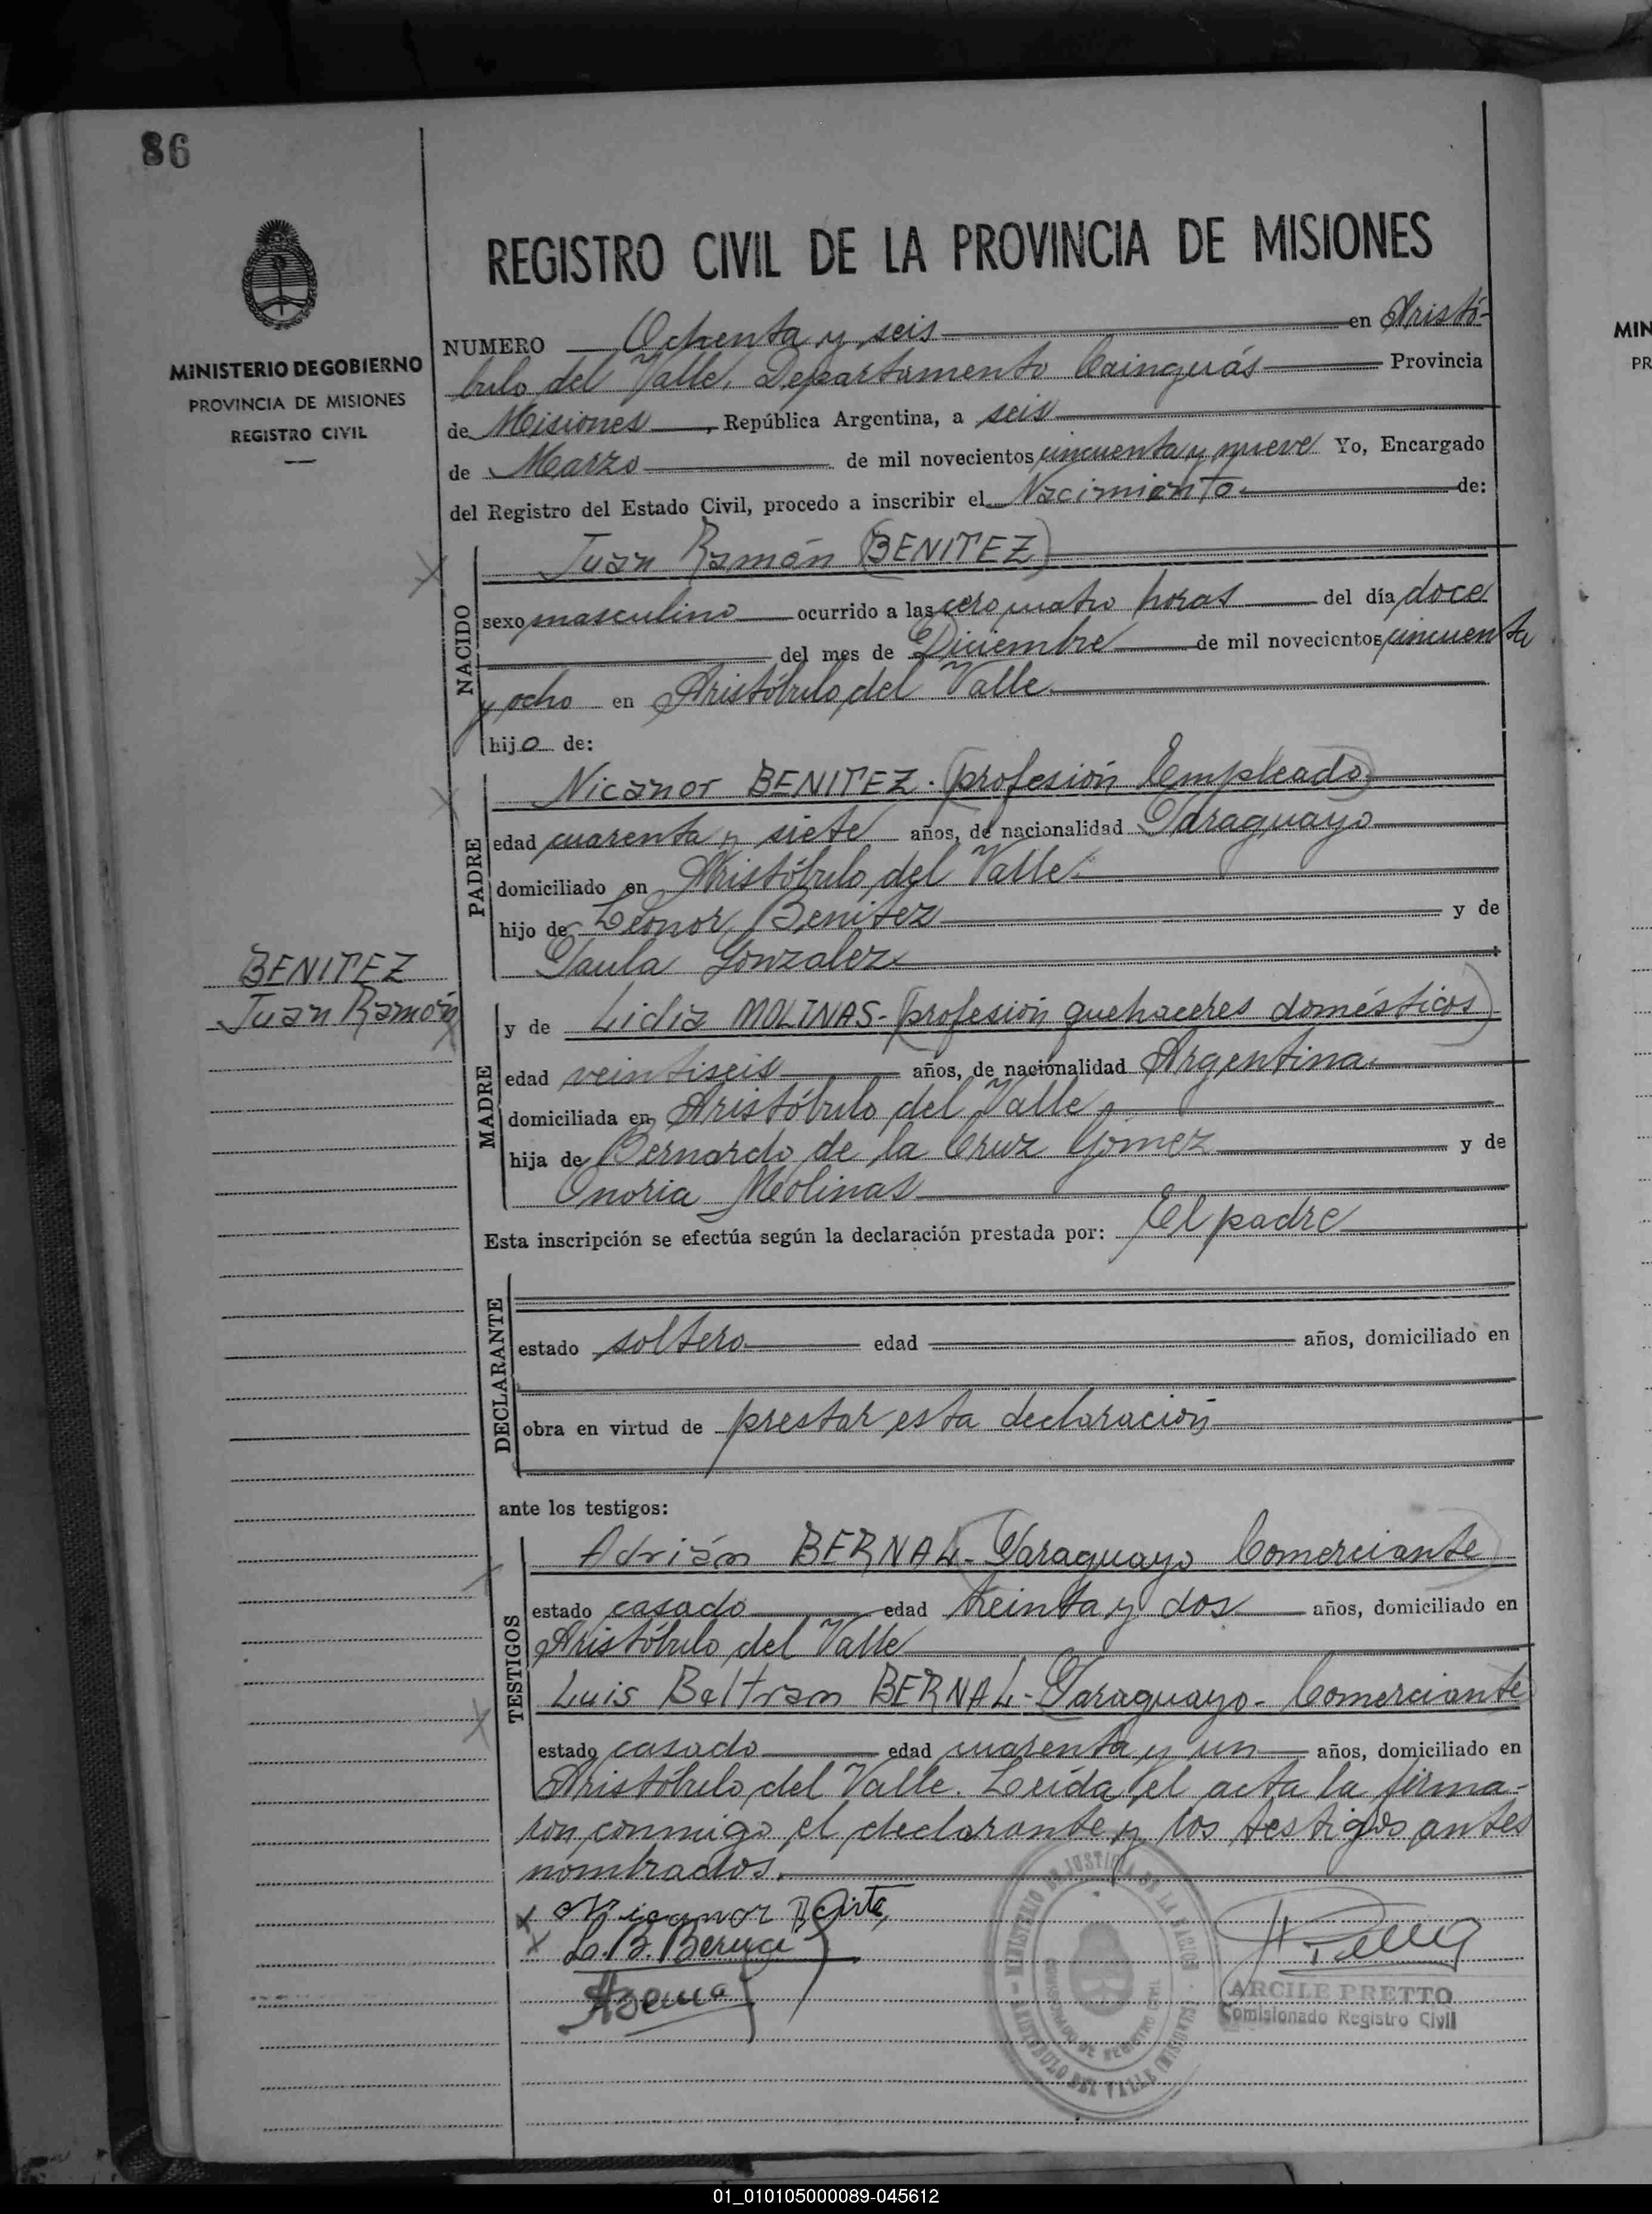 86
MINISTERIO DE GOBIERNO
PROVINCIA DE MISIONES
REGISTRO CIVIL
REGISTRO CIVIL DE LA PROVINCIA DE MISIONES
NUMERO Ochenta y seis en Aristó-
bulo del Valle, Departamento Cainguás Provincia
de Misiones, República Argentina, a seis
de Marzo de mil novecientos cincuenta y nueve Yo, Encargado
del Registro del Estado Civil, procedo a inscribir el Nacimiento de:
NACIDO
Juan Ramón (BENITEZ)
sexo masculino ocurrido a las cero cuatro horas del día doce
del mes de Diciembre de mil novecientos cincuenta
y ocho en Aristóbulo del Valle
hijo de:
PADRE
Nicanor BENITEZ. (profesión Empleado)
edad cuarenta y siete años, de nacionalidad Paraguayo
domiciliado en Aristóbulo del Valle.
hijo de Leonor Benitez y de
Paula Gonzalez
BENITEZ
Juan Ramón
MADRE
y de Lidia MOLINAS-(profesión quehaceres domésticos)
edad veintiseis años, de nacionalidad Argentina.
domiciliada en Aristóbulo del Valle
hija de Bernardo de la Cruz Gómez y de
Onoria Molinas
Esta inscripción se efectúa según la declaración prestada por: El padre
DECLARANTE
estado soltero edad años, domiciliado en
obra en virtud de prestar esta declaración
ante los testigos:
TESTIGOS
Adrián BERNAL-Paraguayo Comerciante
estado casado edad treinta y dos años, domiciliado en
Aristóbulo del Valle
Luis Beltran BERNAL-Paraguayo-Comerciante
estado casado edad cuarenta y un años, domiciliado en
Aristóbulo del Valle. Leída el acta la firma-
ron conmigo el declarante y los testigos antes
nombrados.
Nicanor
L.B.
ARCILE PRETTO
Comisionado Registro Civil
MINISTERIO DE JUSTICIA DE LA NACION
ARISTOBULO DEL VALLE (MISIONES)
MIN
PR
01_010105000089-045612